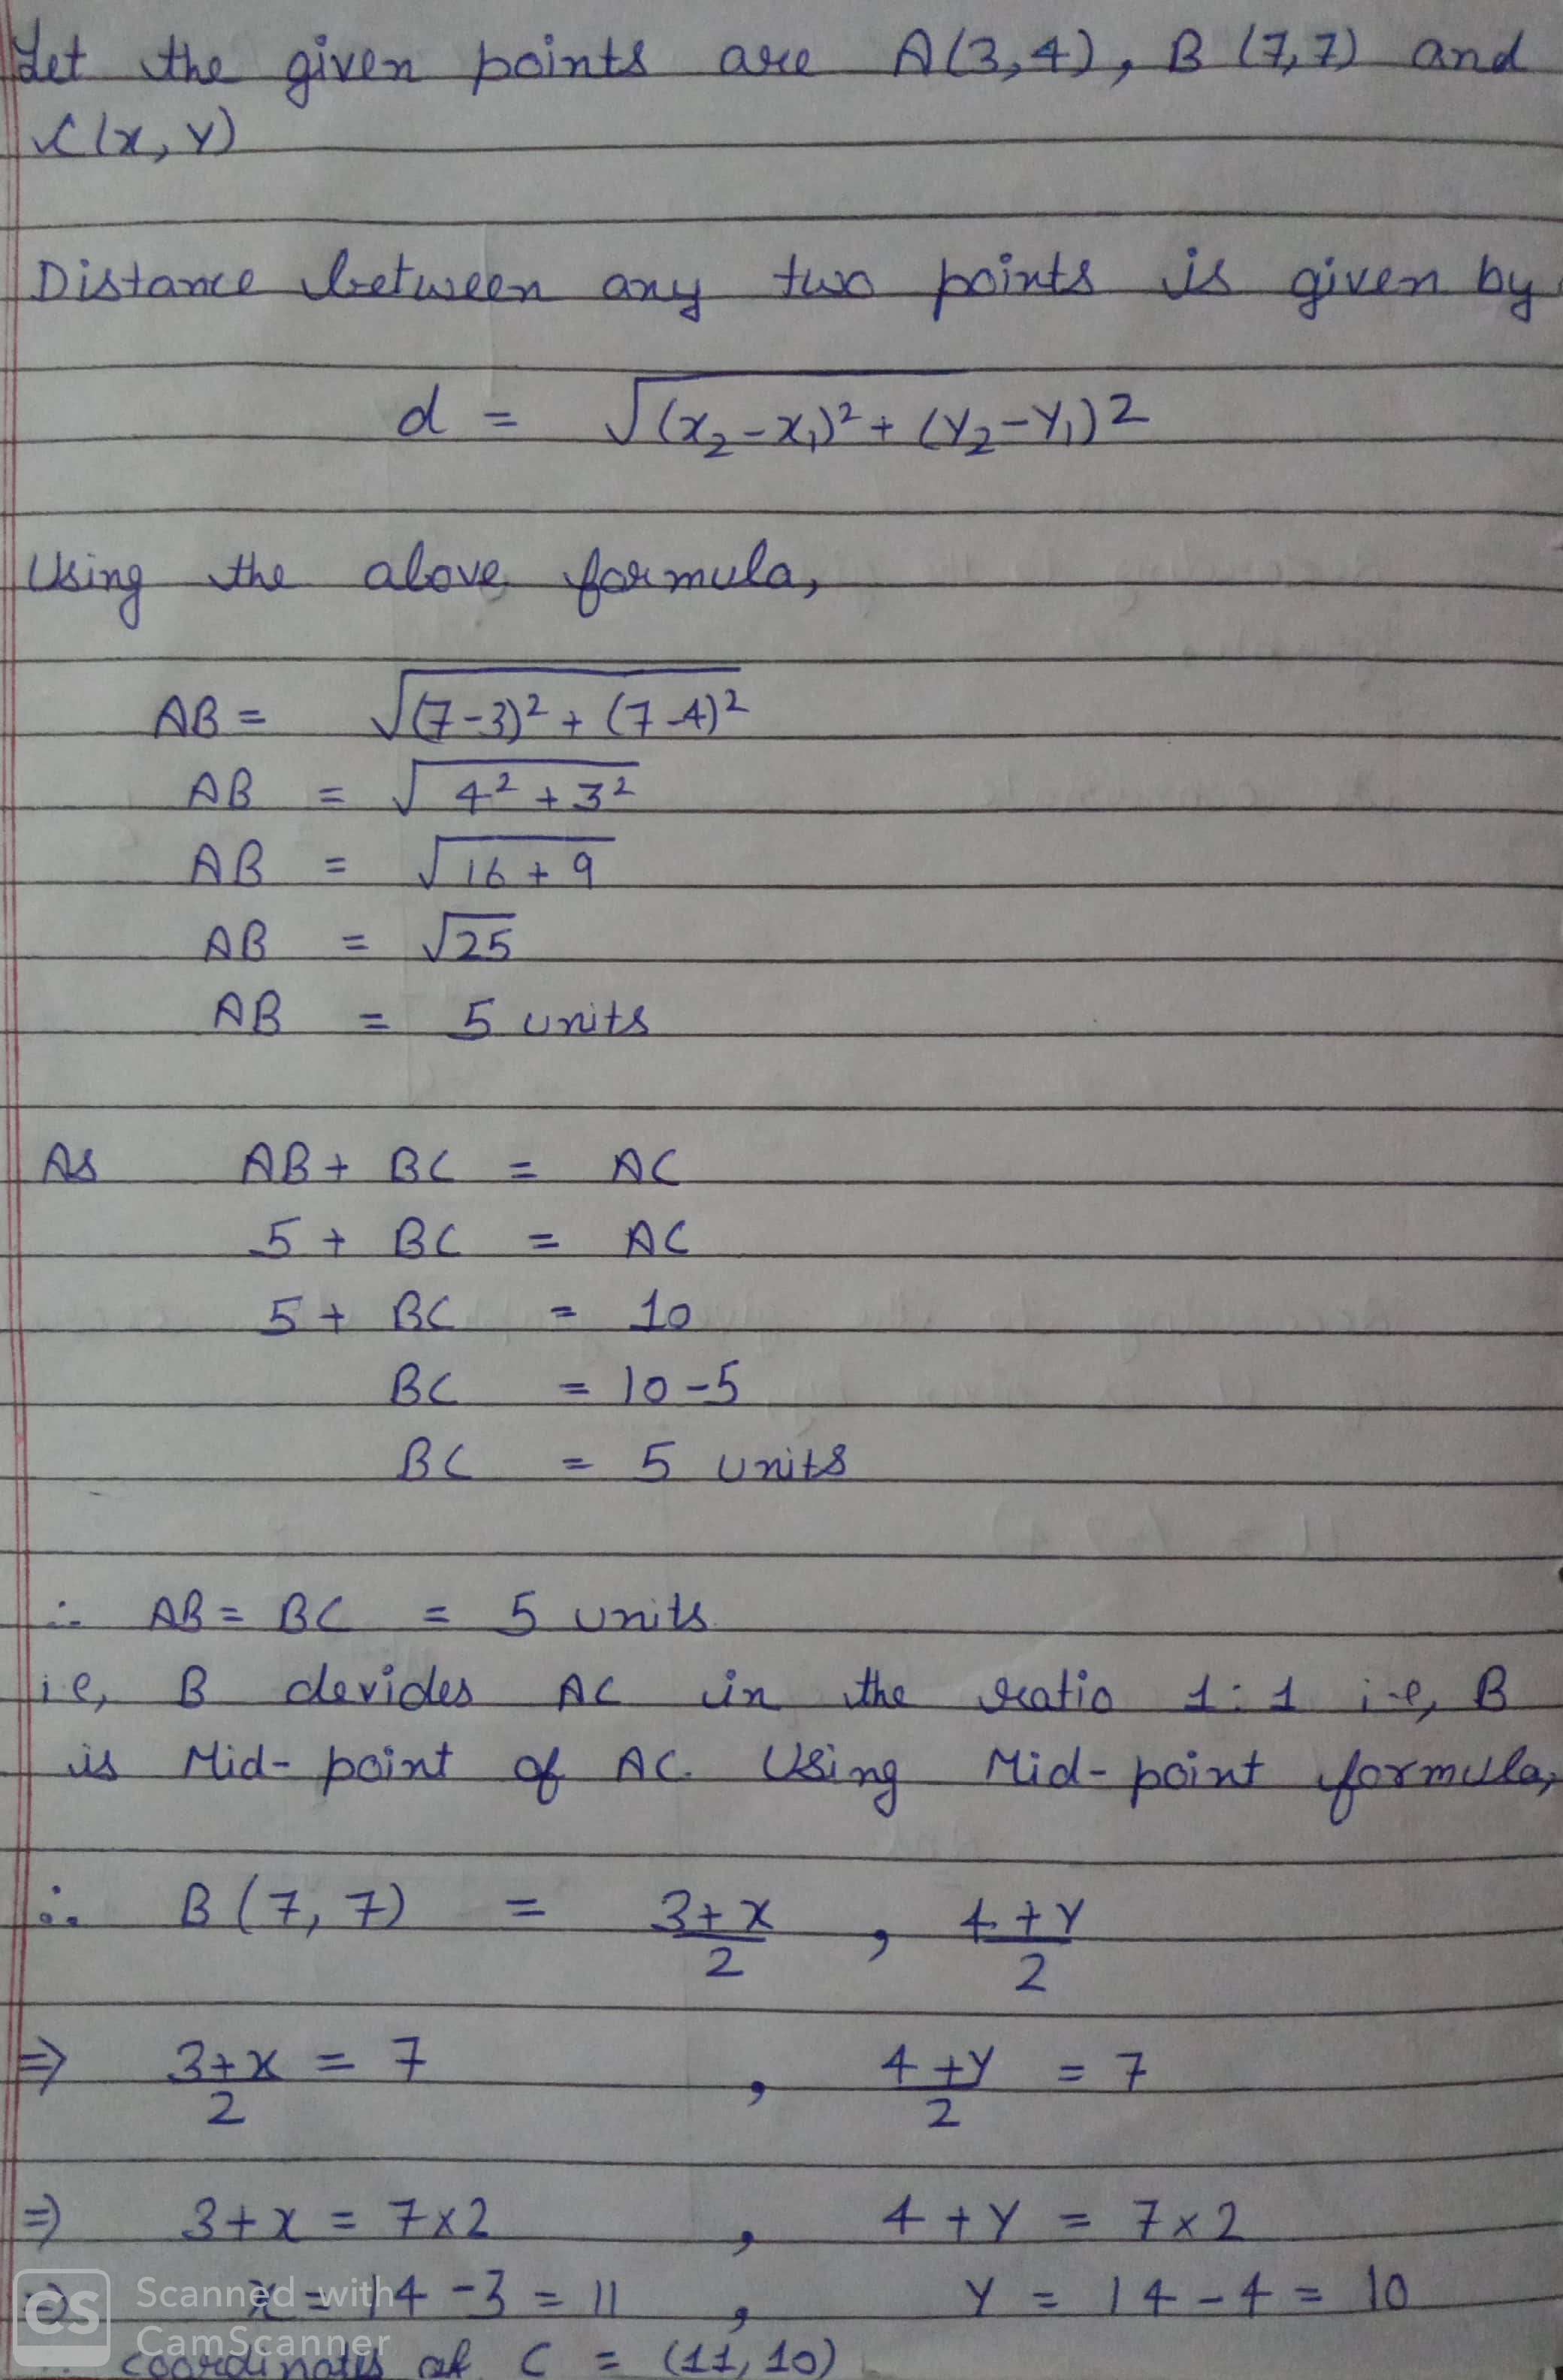 Let the given points are A(3,4), B (7,7) and
C(x,y)
Distance between any two points is given by
d = √(x₂-x₁)²+(y₂-y₁)2
Using the above formula,
AB = √(7-3)²+(7-4)²
AB = √4²+3²
AB = √16+9
AB = √25
AB = 5 units
As AB + BC = AC
5 + BC = AC
5 + BC = 10
BC = 10-5
BC = 5 units
∴ AB = BC = 5 units
i.e, B devides AC in the ratio 1:1 i.e, B
is Mid-point of AC. Using Mid-point formula,
∴ B(7,7) = 3+x/2 , 4+y/2
⇒ 3+x/2 = 7 , 4+y/2 = 7
⇒ 3+x = 7×2 , 4+y = 7×2
⇒ x = 14-3 = 11 , y = 14-4 = 10
∴ coordinates of C = (11,10)
CS Scanned with
CamScanner